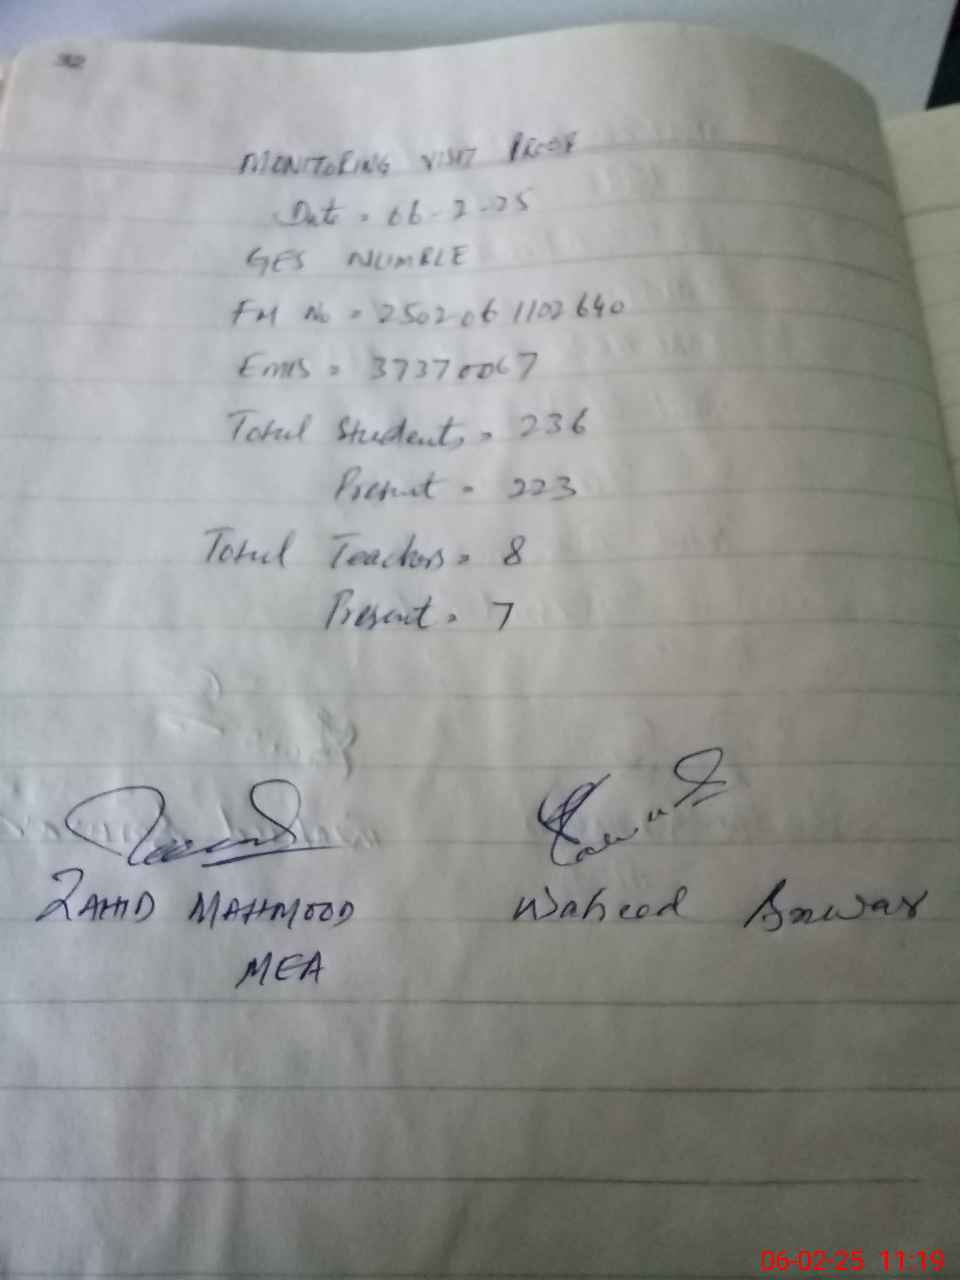 32
MONITORING VISIT PROOF
Date = 06-2-25
GES NUMBLE
FM No = 2502061102640
Emis = 37370067
Total Students = 236
Present = 223
Total Teachers = 8
Present = 7
ZAHID MAHMOOD
Waheed Anwar
MEA
06-02-25 11:19